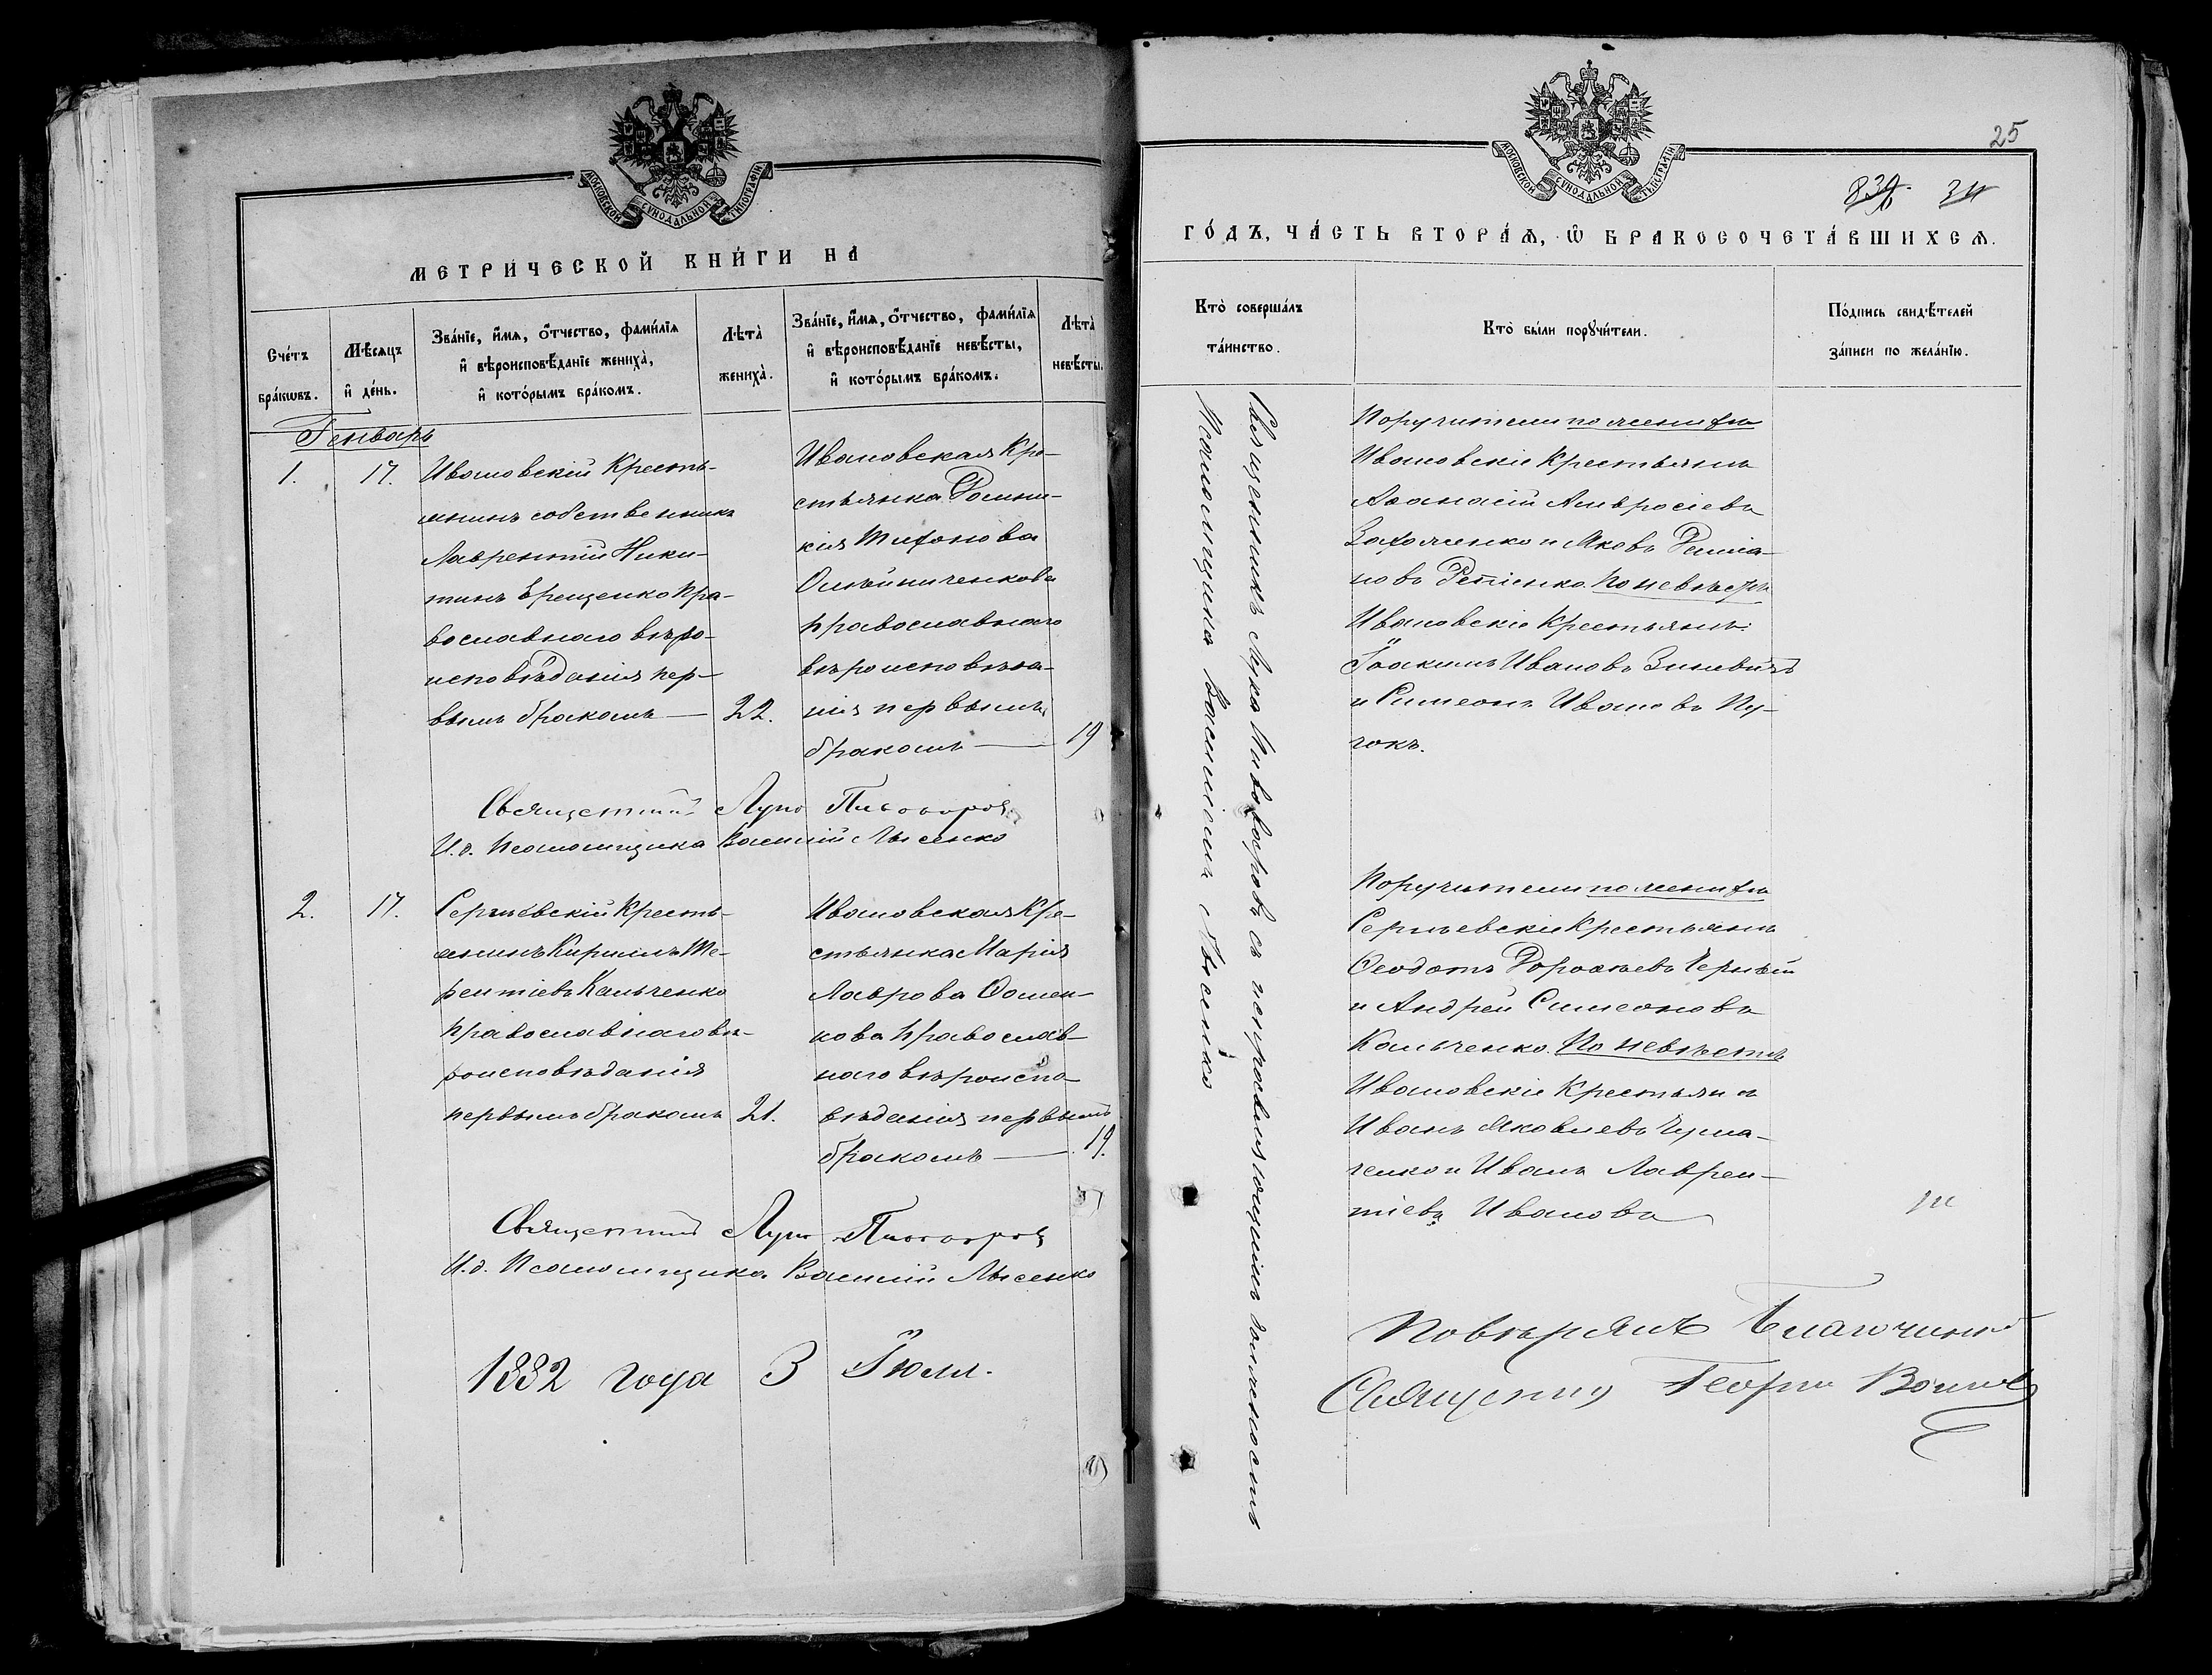 МОСКОВСКОЙ СѴНОДАЛЬНОЙ ТИПОГРАФІИ
МЕТРИ́ЧЕСКОЙ КНИ́ГИ НА
Сче́тъ бра́кѡвъ.
Мѣ́сяцъ и҆ де́нь.
Зва́нїе, и҆́мѧ, ѻ҆́тчество, фами́лїѧ
и҆ вѣроисповѣ́данїе жениха̀,
и҆ кото́рымъ бра́комъ.
Лѣта̀ жениха̀.
Зва́нїе, и҆́мѧ, ѻ҆́тчество, фами́лїѧ
и҆ вѣроисповѣ́данїе невѣ́сты,
и҆ кото́рымъ бра́комъ.
Лѣта̀ невѣ́сты.
Генварь
1.
17.
Ивановскій Кресть-
янинъ собственникъ
Лаврентій Ники-
тинъ Ерещенко Пра-
вославнаго вѣро-
исповѣданія пер-
вымъ бракомъ — 22.
Ивановская Кре-
стьянка
Тихонова
Олейниченкова
православнаго
вѣроисповѣда-
нія первымъ
бракомъ — 19
Священникъ Лука Пивоваровъ
И.д. Псаломщика Василій Лысенко
2.
17.
Сергѣевскій Кресть-
янинъ Кириллъ Те-
рентіевъ Кальченко
православнаго вѣ-
роисповѣданія
первымъ бракомъ 21.
Ивановская Кре-
стьянка Марія
Лаврова Фомен-
кова Православ-
наго вѣроиспо-
вѣданія первымъ
бракомъ — 19.
Священникъ Лука Пивоваровъ
И.д. Псаломщика Василій Лысенко
1882 года 3 Іюля.
25
МОСКОВСКОЙ СѴНОДАЛЬНОЙ ТИПОГРАФІИ
839. 34
ГО́ДЪ, ЧА́СТЬ ВТОРА́Ѧ, Ѡ҆ БРАКОСОЧЕТА́ВШИХСѦ.
Кто̀ соверша́лъ
та́инство.
Кто̀ бы́ли порꙋчи́тели.
По́дпись свидѣ́телей
за́писи по жела́нїю.
Священникъ Лука Пивоваровъ съ исправляющимъ должность
Псаломщика Василіемъ Лысенко
Поручители по женихѣ
Ивановскіе Крестьяне
Аѳанасій Амвросіевъ
Захаженко и Яковъ
Репіенко. По невѣстѣ
Ивановскіе Крестьяне:
Іоакимъ Ивановъ Зиневичъ
и Симеонъ Ивановъ Пу-
чокъ.
Поручители по женихѣ
Сергѣевскіе Крестьяне
Ѳеодотъ Дороѳеевъ Чернѣй
и Андрей Симеоновъ
Кальченко. По невѣстѣ
Ивановскіе Крестьяне
Иванъ Яковлевъ Чума-
ченко и Иванъ Лаврен-
тіевъ Ивановъ
Повѣрялъ Благочинный
Священникъ Георгій